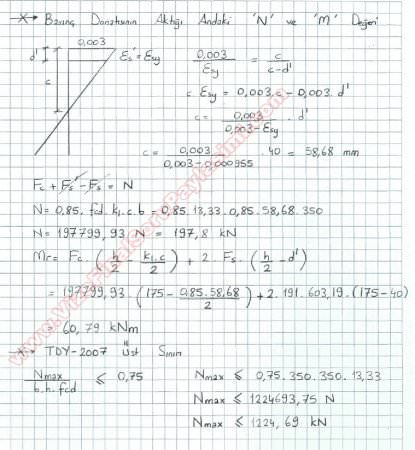 * → Basınç Donatısının Aktığı Andaki 'N' ve 'M' Değeri
0,003
d'
c
εs' = εsy
0,003 / εsy = c / c-d'
c. εsy = 0,003.c - 0,003. d'
c = 0,003 / 0,003-εsy . d'
c = 0,003 / 0,003-0,000955 . 40 = 58,68 mm
Fc + Fs' - Fs = N
N = 0,85. fcd. k1. c. b = 0,85. 13,33. 0,85. 58,68. 350
N = 197799,93 N = 197,8 kN
Mr = Fc. (h/2 - k1.c/2) + 2. Fs. (h/2 - d')
= 197799,93. (175 - 0,85.58,68/2) + 2. 191.603,19. (175-40)
= 60,79 kNm
* → TDY-2007 Üst Sınır
Nmax / b.h.fcd ≤ 0,75
Nmax ≤ 0,75. 350. 350. 13,33
Nmax ≤ 1224693,75 N
Nmax ≤ 1224,69 kN
www.VizeFinalSoruPaylasimi.com